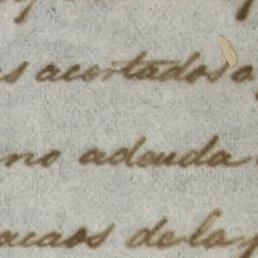 s acertados a
no adeuda
ocaos de la